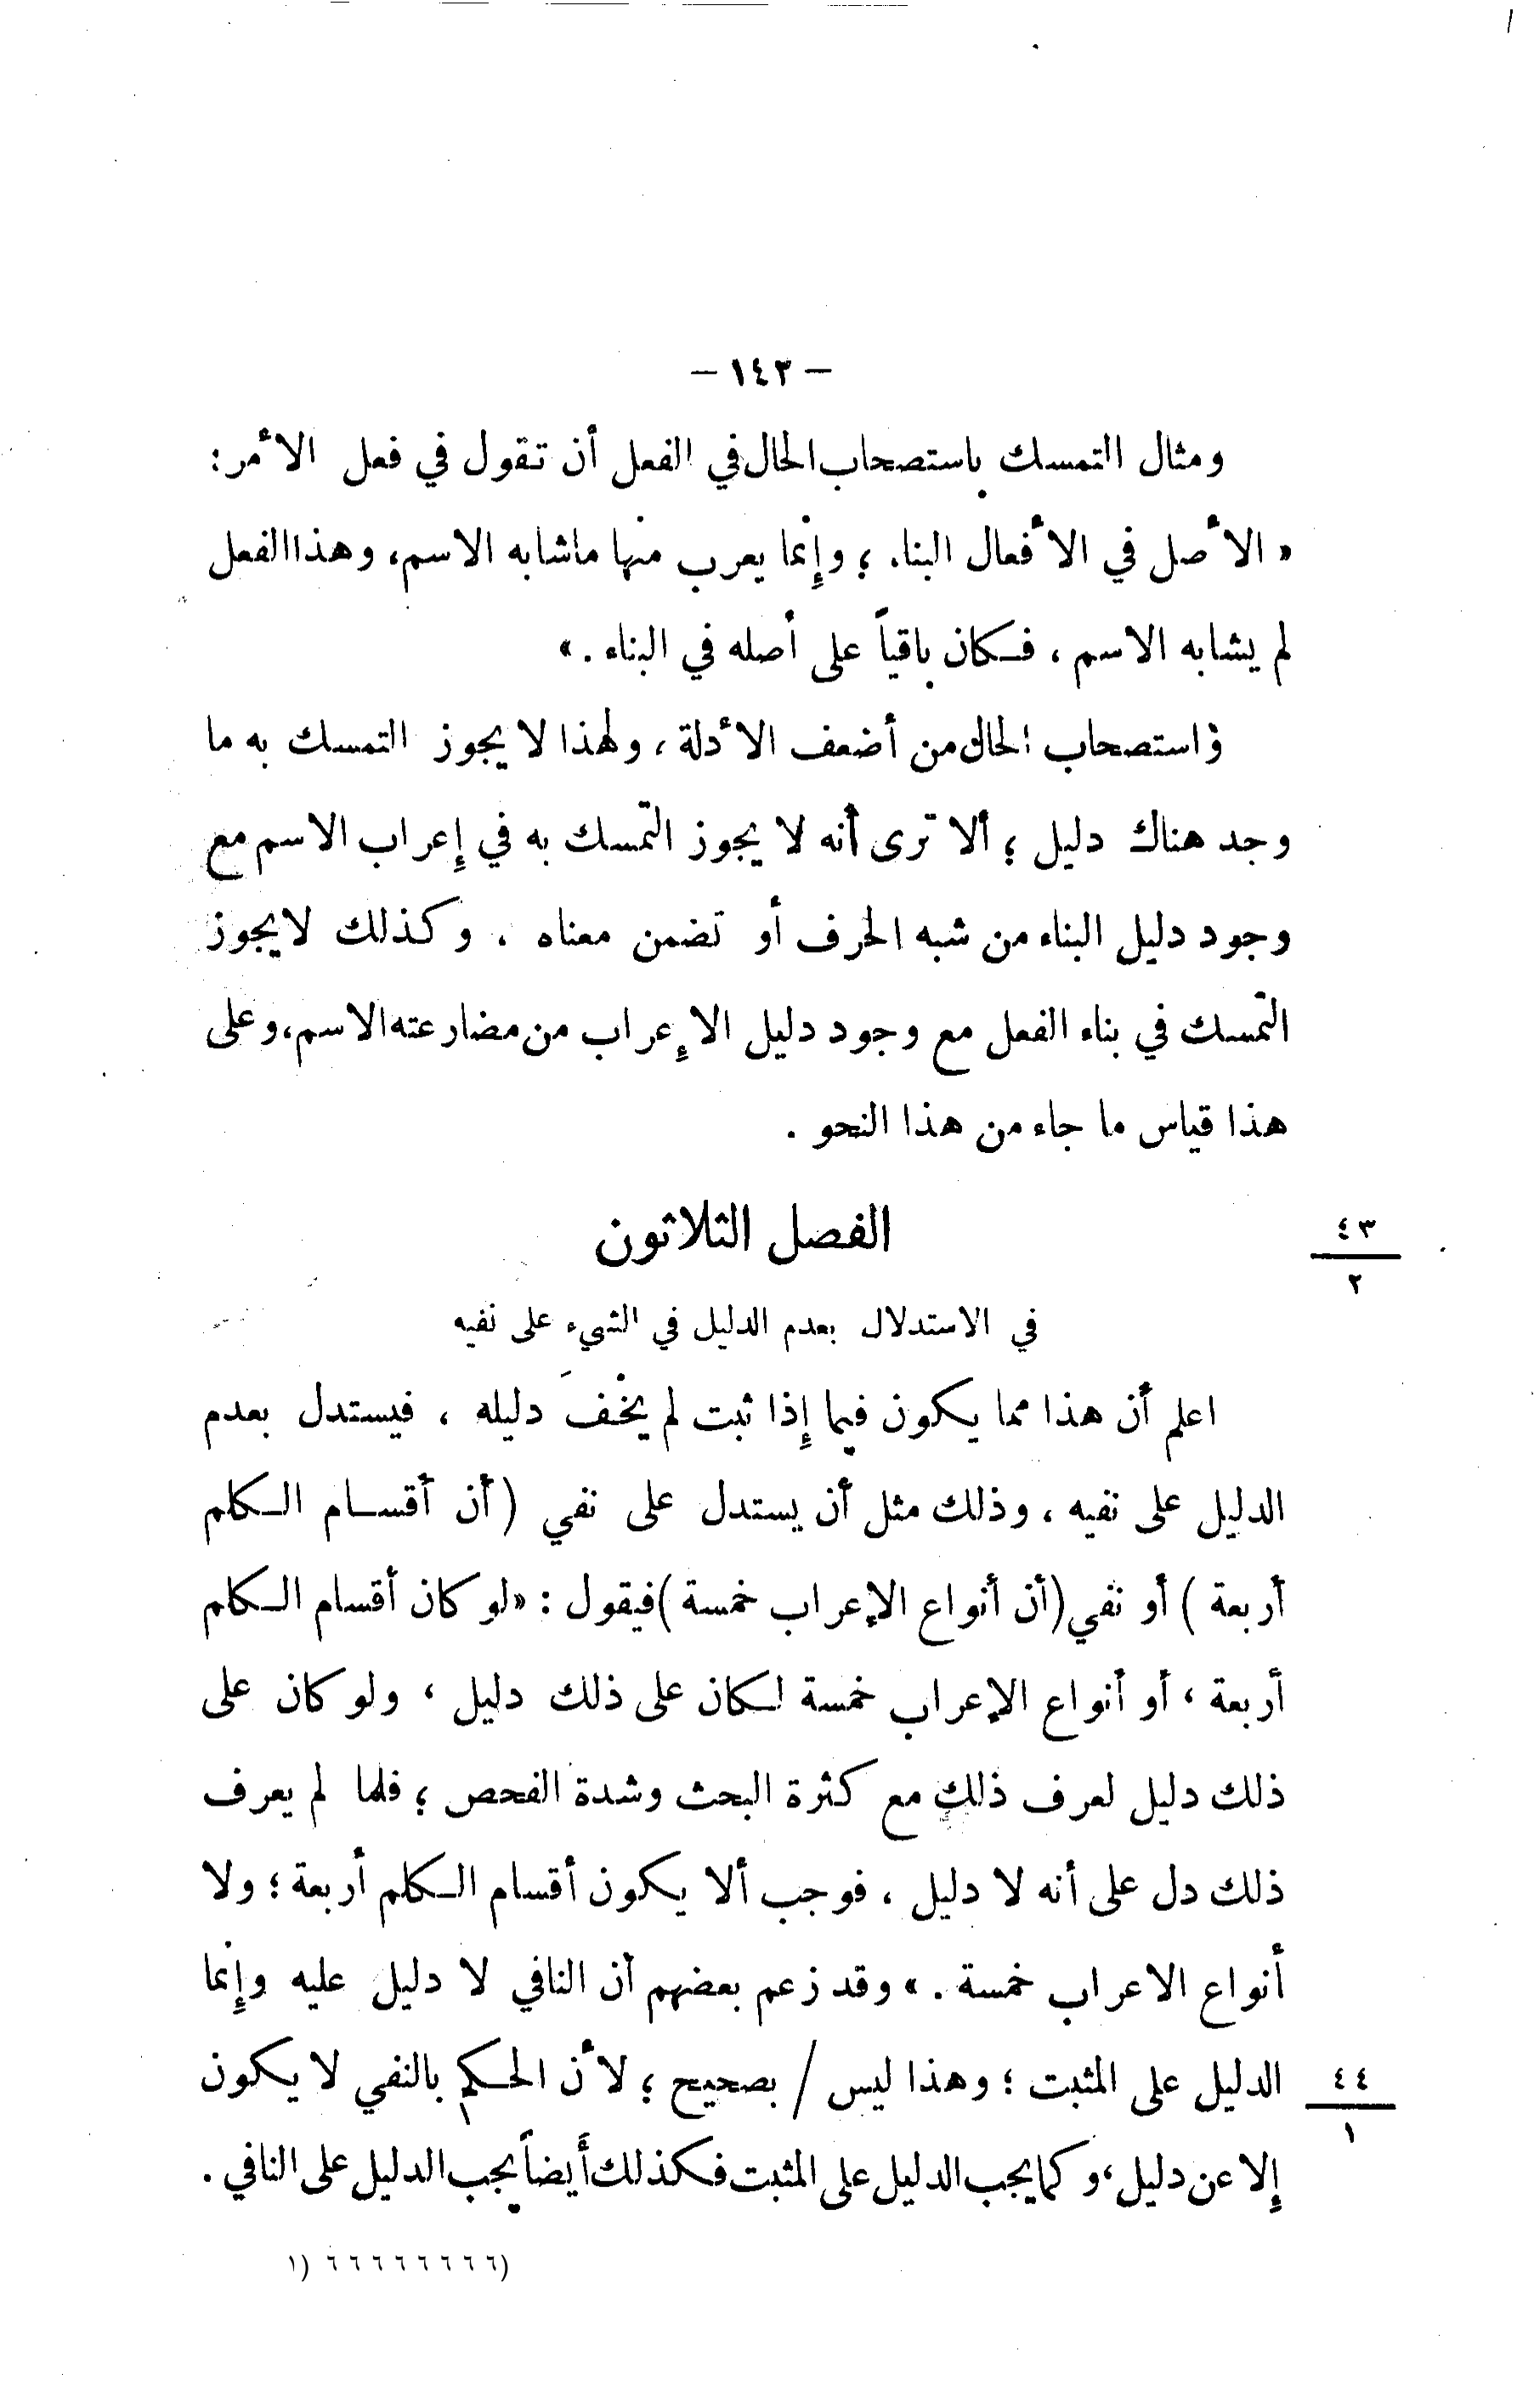 — ١٤٢ —
ومثال التمسك باستصحاب الحال في الفعل أن تقول في فعل الأمر:
« الأصل في الأفعال البناء ؛ وإنما يعرب منها ماشابه الاسم، وهذا الفعل
لم يشابه الاسم ، فكان باقياً على أصله في البناء . »
واستصحاب الحال من أضعف الأدلة ، ولهذا لا يجوز التمسك به ما
وجد هناك دليل ؛ ألا ترى أنه لا يجوز التمسك به في إعراب الاسم مع
وجود دليل البناء من شبه الحرف أو تضمن معناه . وكذلك لا يجوز
التمسك في بناء الفعل مع وجود دليل الإعراب من مضارعته الاسم، وعلى
هذا قياس ما جاء من هذا النحو .
الفصل الثلاثون
٤٣
٢
في الاستدلال بعدم الدليل في الشيء على نفيه
اعلم أن هذا مما يكون فيما إذا ثبت لم يخْفَ دليله ، فيستدل بعدم
الدليل على نفيه ، وذلك مثل أن يستدل على نفي (أن أقسام الكلم
أربعة ) أو نفي (أن أنواع الإعراب خمسة ) فيقول : «لو كان أقسام الكلم
أربعة ، أو أنواع الإعراب خمسة لكان على ذلك دليل ، ولو كان على
ذلك دليل لعرف ذلك مع كثرة البحث وشدة الفحص ؛ فلما لم يعرف
ذلك دل على أنه لا دليل ، فوجب ألا يكون أقسام الكلم أربعة ؛ ولا
أنواع الاعراب خمسة . » وقد زعم بعضهم أن النافي لا دليل عليه وإنما
الدليل على المثبت ؛ وهذا ليس / بصحيح ؛ لأن الحكم بالنفي لا يكون
٤٤
١
إلا عن دليل ، وكما يجب الدليل على المثبت فكذلك أيضاً يجب الدليل على النافي .
(٦ ٦ ٦ ٦ ٦ ٦ ٦ ٦ (١